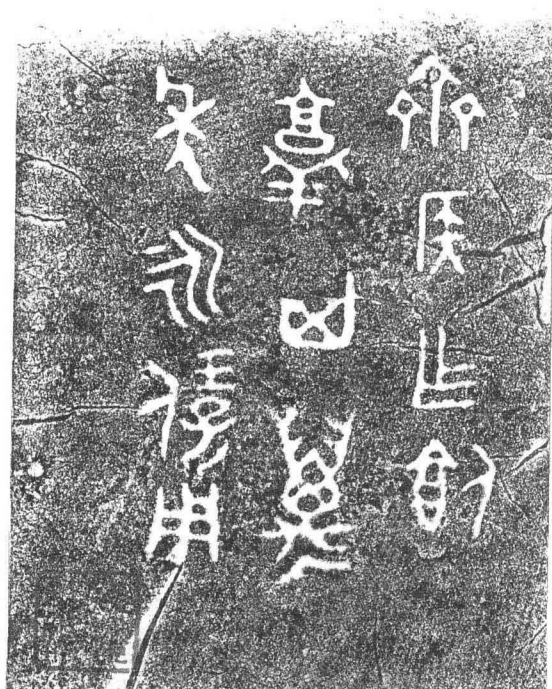 齊侯乍飤
𦎫其萬
年永保用